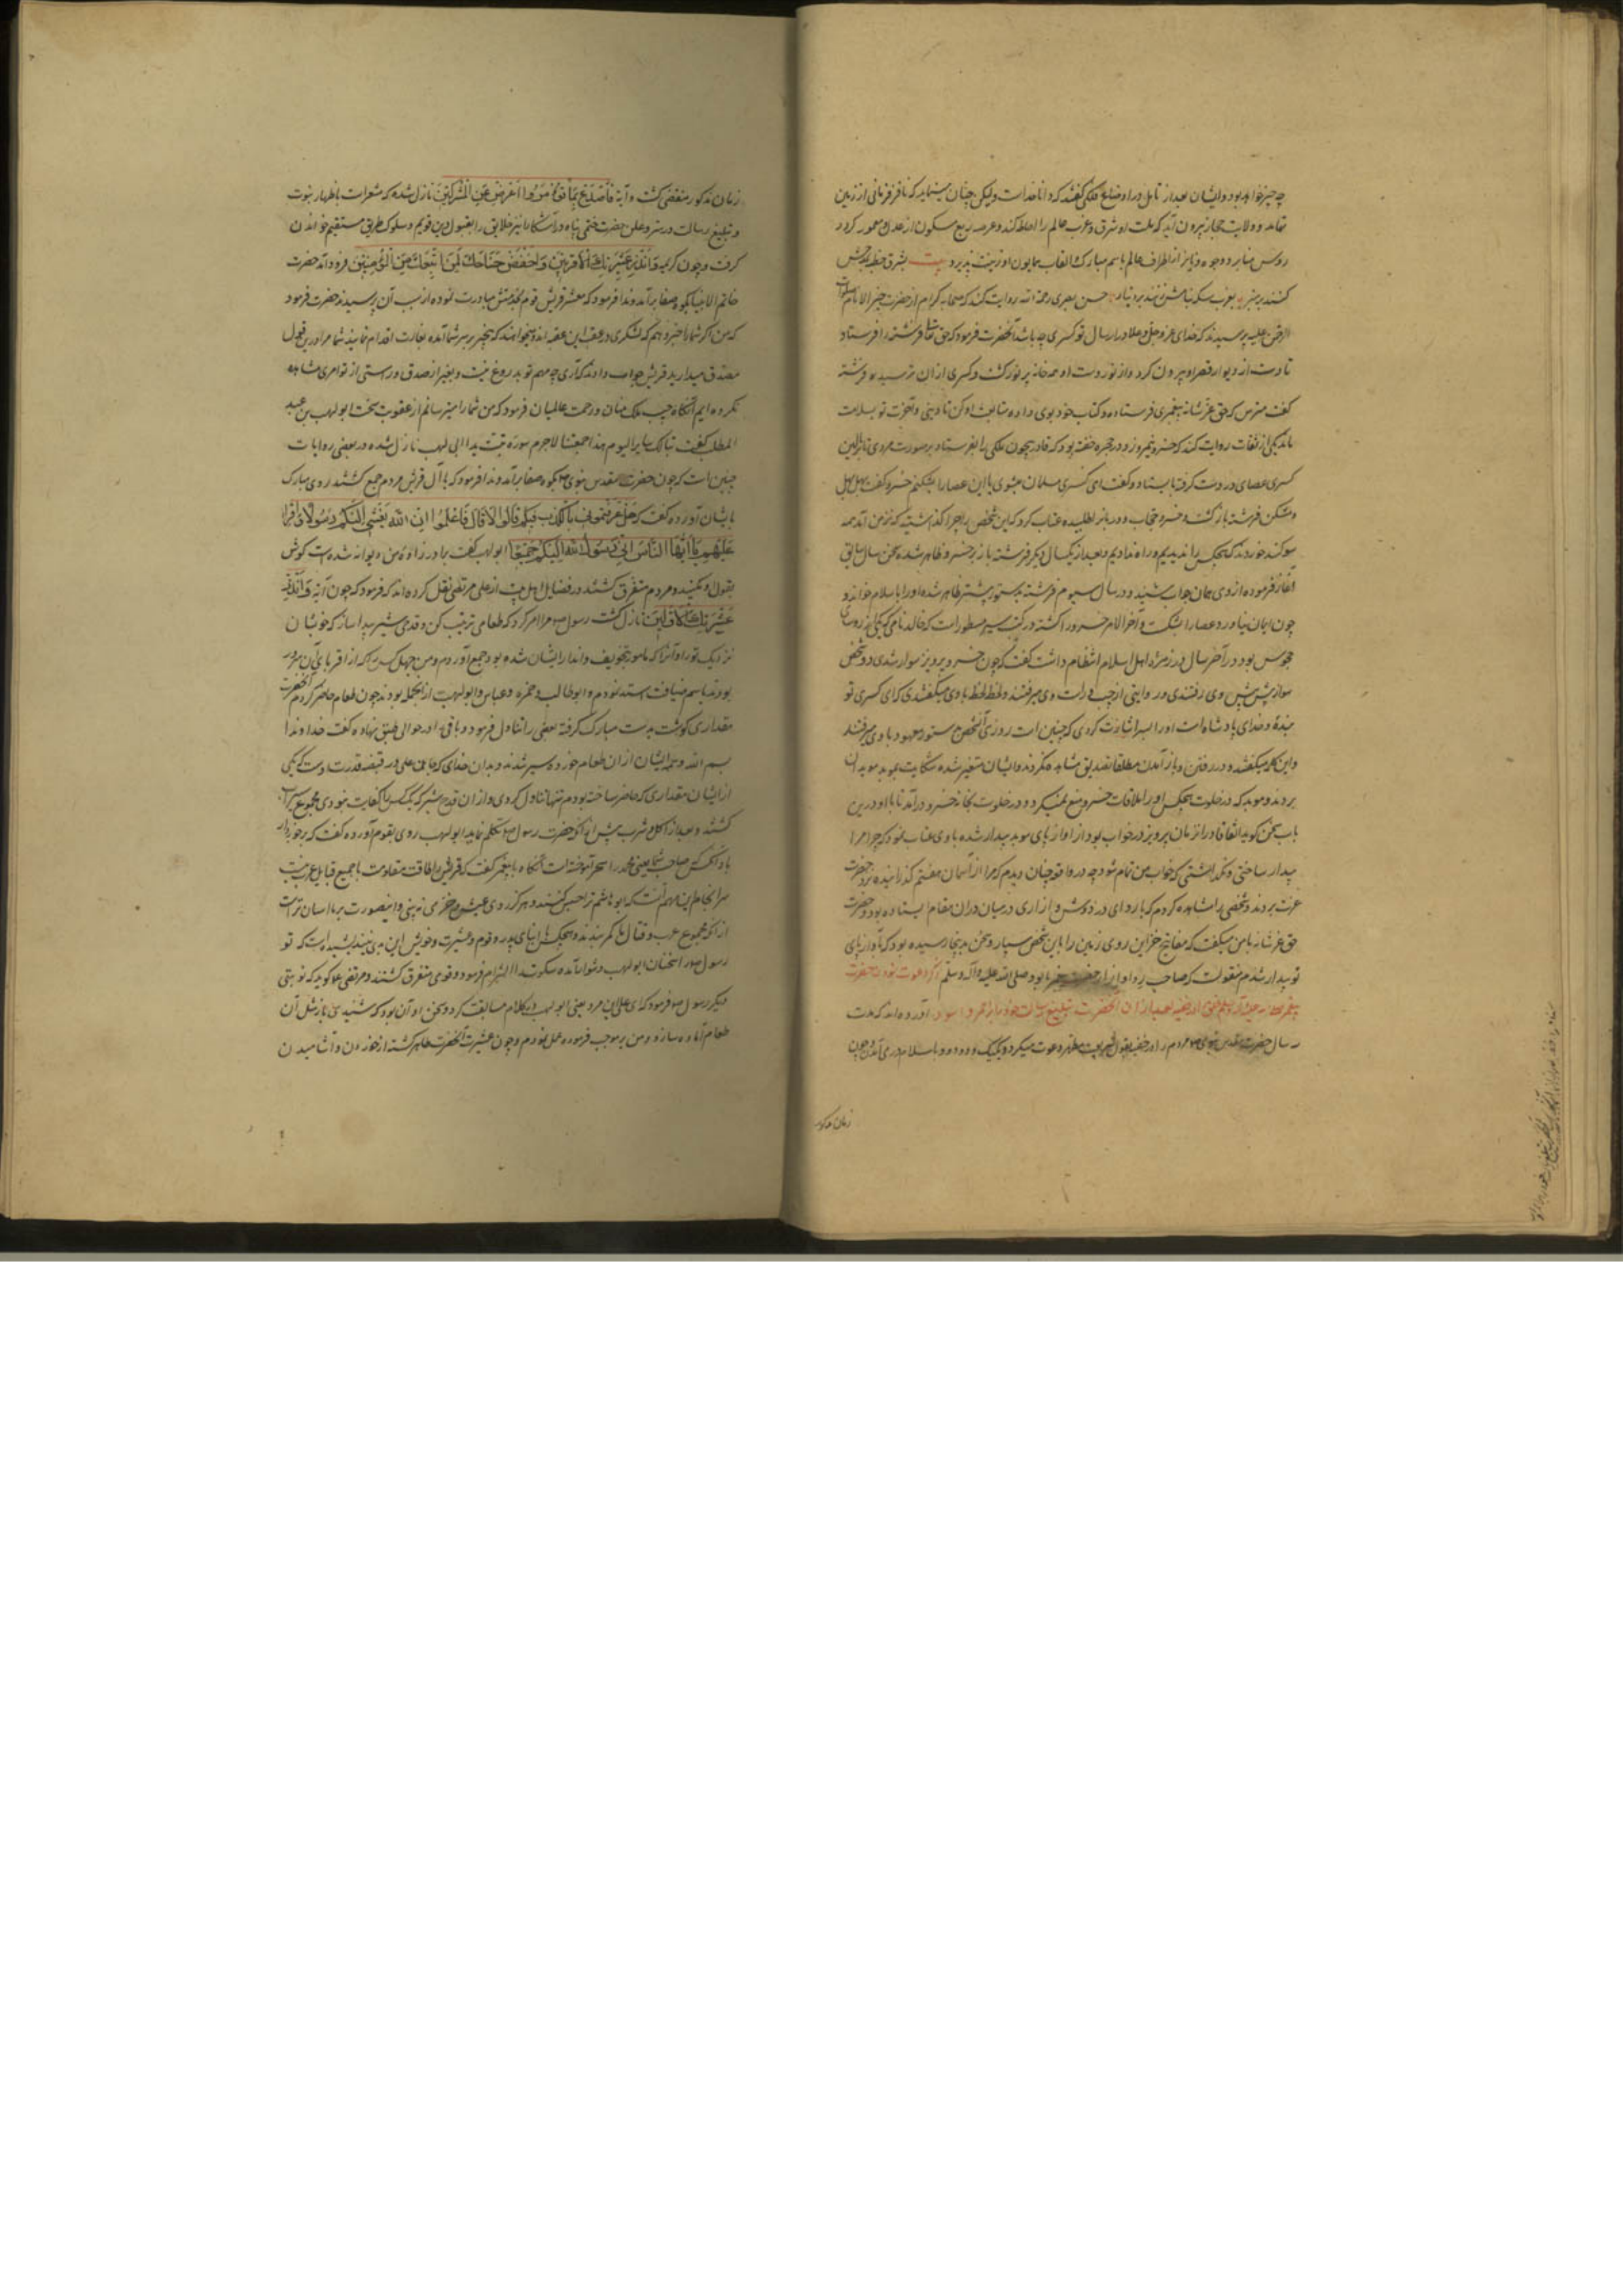 چه چیز خواهد بود و ایشان بعد از تامل در اوضاع فلکی گفتند که دانا خداست ولیکن چنان مینماید که نافذ فرمانی از زمین
تهامه و ولایت حجاز بیرون آید که ملت او شرق و غرب عالم را احاطه کند و عرصه ربع مسکون از عدل او معمور گردد
روس منابر و وجوه دنانیر از اطراف عالم باسم مبارک و القاب همایون او زینت پذیرد بیت بشرق خطبه
کنند بر منبر بغرب سکه نامش زنند بر دینار حسن بصری رحمة الله روایت کند که صحابه کرام از حضرت خیر الانام صلوات
الرحمن علیه پرسیدند که خدای عز و جل و علا در ارسال تو کسری چه باشد آنحضرت فرمود که حق تعالی فرشته را فرستاد
تا دست از دیوار قصر او بیرون کرد و از نور دست او همه خانه پر نور گشت و کسری از ان بترسید و فرشته
گفت مترس که حق عز شانه پیغمبری فرستاده و کتاب خود بوی داده متابعت او کن تا دینی و آخرت تو بسلامت
ماند یکی از ثقات روایت کند که خسرو نیم روز در حجره خفته بود که قادر بیچون ملکی را بفرستاد بر صورت مردی تا ببالین
کسری عصای در دست گرفته بایستاد و گفت ای کسری مسلمان میشوی یا این عصا را بشکنم خسرو گفت بهل بهل
و مشکن فرشته بازگشت و خسرو حجاب و دربانرا طلبیده عتاب کرد که این شخص را چرا گذاشتید که نزد من آمد همه
سوگند خوردند که هیچکس را ندیدیم و راه ندادیم و بعد از یکسال دیگر فرشته باز بر خسرو ظاهر شده سخن سال سابق
آغاز فرموده از وی همان جواب شنید و در سال سیوم فرشته بدستور پیشتر ظاهر شده او را باسلام خواند و
چون ایمان نیاورد عصا را بشکست و آخر الامر خسرو را کشته در کتب سیر مسطورست که خالد نامی که یکی از روسای
مجوس بود در آخر سال در زمره اهل اسلام انتظام داشت گفت که چون خسرو پرویز سوار شدی دو شخص
سوار پیش پیش وی رفتندی و روایتی از چپ و راست وی میرفتند و لحظه لحظه با وی میگفتندی که ای کسری تو
بنده و خدای پادشاه است او را اشارت کردی که چنین است روزی آنشخص بدستور معهود با وی میرفتند
و این کلمه میگفتند و در رفتن و باز آمدن مطلقا تصدیق مشاهده نکردند و ایشان متغیر شده شکایت بموبد موبدان
بردند و موبد که در خلوت هیچکس او را از ملاقات خسرو منع نمیکرد و در خلوت بخانه خسرو درآمد تا با او درین
باب سخن گوید اتفاقا در انزمان پرویز در خواب بود از آواز پای موبد بیدار شده با وی عتاب نمود که چرا مرا
بیدار ساختی و نگذاشتی که خواب من تمام شود چه در واقعه چنان دیدم که مرا از آسمان هفتم گذرانیده نزد حضرت
عزت بردند و شخصی را مشاهده کردم که با ردای در دوش و ازاری در میان دران مقام ایستاده بود و حضرت
حق عز شانه با من میگفت که مفاتیح خزاین روی زمین را باین شخص سپار و سخن بدینجا رسیده بود که بآواز پای
تو بیدار شدم منقولست که صاحب ردا و ازار حضرت پیغمبر ما بود صلی الله علیه و آله و سلم ذکر دعوت نمودن حضرت
بعد از ان آنحضرت تبلیغ رسالت خود را بر احمر و اسود آورده اند که مدت
سه سال حضرت مقدس نبوی مردم را در خفیه بقبول شریعت مطهره دعوت میکرد و یکیک و دو دو باسلام در می آمدند و چون
زمان مذکور
زمان مذکور منقضی گشت و آیه فَاصْدَعْ بِمَا تُؤْمَرُ وَاَعْرِضْ عَنِ الْمُشْرِکِینَ نازل شده که مشعر است باظهار نبوت
و تبلیغ رسالت در سر و علن حضرت ختمی پناه در آشکارا نیز خلایق را بقبول دین قویم و سلوک طریق مستقیم خواندن
گرفت و چون کریمه وَاَنْذِرْ عَشِیرَتَکَ الْاَقْرَبِینَ وَاخْفِضْ جَنَاحَکَ لِمَنِ اتَّبَعَکَ مِنَ الْمُؤْمِنِینَ فرود آمد حضرت
خاتم الانبیا بکوه صفا برآمد و ندا فرمود که معشر قریش قوم بخدمتش مبادرت نموده از سبب آن پرسیدند حضرت فرمود
که من اگر شما را خبر دهم که لشکری در عقب این عقبه اند و میخواهند که بیخبر بر سر شما آمده بغارت اقدام نمایند شما مرا درین قول
مصدق میدارید قریش جواب دادند که آری چه مهم تو بدروغ نیست و بغیر از صدق و راستی از تو امری مشاهده
نکرده ایم آنگاه حبیب ملک منان و رحمت عالمیان فرمود که من شما را میترسانم از عقوبت سخت ابو لهب بن عبد
المطلب گفت تبا لک سایر الیوم هذا جمعتنا لاجرم سوره تبت یدا ابی لهب نازل شده در بعضی روایات
چنین است که چون حضرت مقدس نبوی بکوه صفا برآمد و ندا فرمود که یا آل قریش مردم جمع گشتند روی مبارک
بایشان آورده گفت که هَلْ عَرَفْتُمُونِی بِالْکَذِبِ فِیکُمْ قَالُوا لَا قَالَ فَاعْلَمُوا اِنَّ اللهَ بَعَثَنِی اِلَیْکُمْ رَسُولًا
عَلَیْهِمْ یَا اَیُّهَا النَّاسُ اِنِّی رَسُولُ اللهِ اِلَیْکُمْ جَمِیعًا ابو لهب گفت برادرزاده من دیوانه شده است گوش
بقول او مکنید و مردم متفرق گشتند در فضایل اهل بیت از علی مرتضی نقل کرده اند که فرمود که چون آیه وَاَنْذِرْ
عَشِیرَتَکَ الْاَقْرَبِینَ نازل گشت رسول مرا امر کرد که طعامی ترتیب کن و قدحی شیر پیدا ساز که خویشان
نزدیک تو را و آنرا که مامور بتخویف و انذار ایشان شده بود جمع آوردم و من چهل کس را که از اقربای آن سرور
بودند باسم ضیافت استدعا نمودم و ابو طالب و حمزه و عباس و ابو لهب از آنجمله بودند چون طعام حاضر کردم آنحضرت
مقداری گوشت بدست مبارک گرفته بعضی را تناول فرمود و باقی را در حوالی طبق نهاده گفت خداوندا
بسم الله و همه ایشان از ان طعام خورده سیر شدند و بدان خدای که جان علی در قبضه قدرت اوست که یکی
از ایشان مقداری که حاضر ساخته بودم تنها تناول کردی و از ان قدح شیر که یک کس را کفایت نمودی مجموع سیراب
گشتند و بعد از اکل و شرب پیش از آنکه حضرت رسول تکلم نماید ابو لهب روی بقوم آورده گفت که
صاحب شما یعنی محمد را سحر آموخته است آنگاه با پیغمبر گفت که قریش را طاقت مقاومت با جمیع قبایل عرب نیست
سرانجام این مهم آنست که ابو هاشم ترا حبس کنند و هرگز روی عیش و خرمی نبینی و اینصورت بر ما آسان تر است
از آنکه مجموع عرب و قتال ما کمر ببندند و هیچکس با ابنای پدر و قوم و عشیرت و خویش این بدی نیندیشیده است که تو
رسول از سخنان ابو لهب دشوار آمده سکوت را التزام فرمود و قوم متفرق گشتند و مرتضی علی گوید که نوبتی
دیگر رسول فرمود که ای علی این مرد یعنی ابو لهب در کلام مسابقت کرد و سخن او آن بود که شنیدی باز مثل آن
طعام آماده ساز و من بر موجب فرموده عمل نمودم و چون عشیرت آنحضرت حاضر گشته از خوردن و آشامیدن